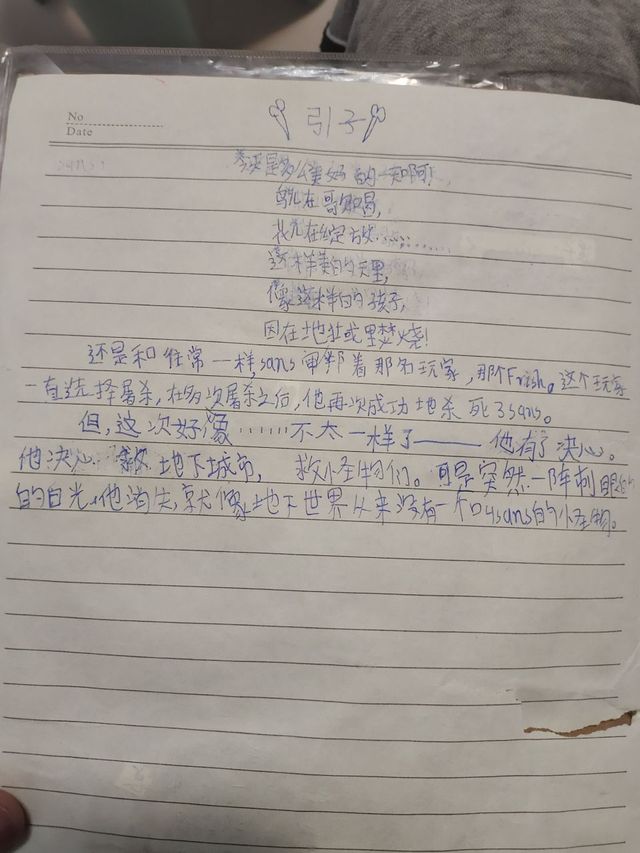 No
Date
引子
春天是多么美好的一天啊!
鸟儿在歌唱,
花儿在绽放............
这样美的天里,
像这样的孩子,
因在地狱里焚烧!
还是和往常一样sans审判着那名玩家,那个Frish。这个玩家
一直选择屠杀,在多次屠杀之后,他再次成功地杀死了sans。
但,这次好像……不太一样了——他有了决心。
他决心 救地下城市, 救小怪物们。可是突然一阵刺眼的
的白光,他消失,就像地下世界从来没有一个叫sans的小怪物。